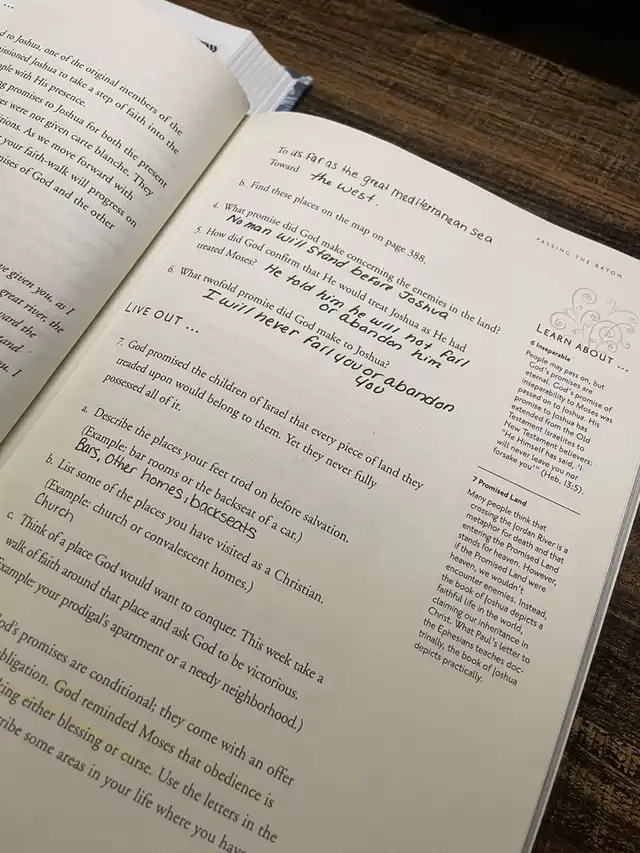 ...
d to Joshua, one of the original members of the
issioned Joshua to take a step of faith into the
ple with His presence.
ng promises to Joshua for both the present
es were not given carte blanche. They
tions. As we move forward with
your faith-walk will progress on
mises of God and the other
ve given you, as I
great river, the
ward the
tand
u. I
To as far as the great mediterranean sea
Toward the west.
b. Find these places on the map on page 388.
4. What promise did God make concerning the enemies in the land?
No man will stand before Joshua
5. How did God confirm that He would treat Joshua as He had
treated Moses? He told him he will not fail
or abandon him
6. What twofold promise did God make to Joshua?
I will never fail you or abandon
you
LIVE OUT ...
7. God promised the children of Israel that every piece of land they
treaded upon would belong to them. Yet they never fully
possessed all of it.
a. Describe the places your feet trod on before salvation.
(Example: bar rooms or the backseat of a car.)
Bars, Other homes, backseats
b. List some of the places you have visited as a Christian.
(Example: church or convalescent homes.)
Church
c. Think of a place God would want to conquer. This week take a
walk of faith around that place and ask God to be victorious.
Example: your prodigal's apartment or a needy neighborhood.)
God's promises are conditional; they come with an offer
obligation. God reminded Moses that obedience is
king either blessing or curse. Use the letters in the
cribe some areas in your life where you have
PASSING THE BATON
LEARN ABOUT ...
6 Inseparable
People may pass on, but
God's promises are
eternal. God's promise of
inseparability to Moses was
passed on to Joshua. His
promise to Joshua has
extended from the Old
Testament Israelites to
New Testament believers:
"He Himself has said, 'I
will never leave you nor
forsake you'" (Heb. 13:5).
7 Promised Land
Many people think that
crossing the Jordan River is a
metaphor for death and that
entering the Promised Land
stands for heaven. However,
if the Promised Land were
heaven, we wouldn't
encounter enemies. Instead,
the book of Joshua depicts a
faithful life in the world,
claiming our inheritance in
Christ. What Paul's letter to
the Ephesians teaches doc-
trinally, the book of Joshua
depicts practically.